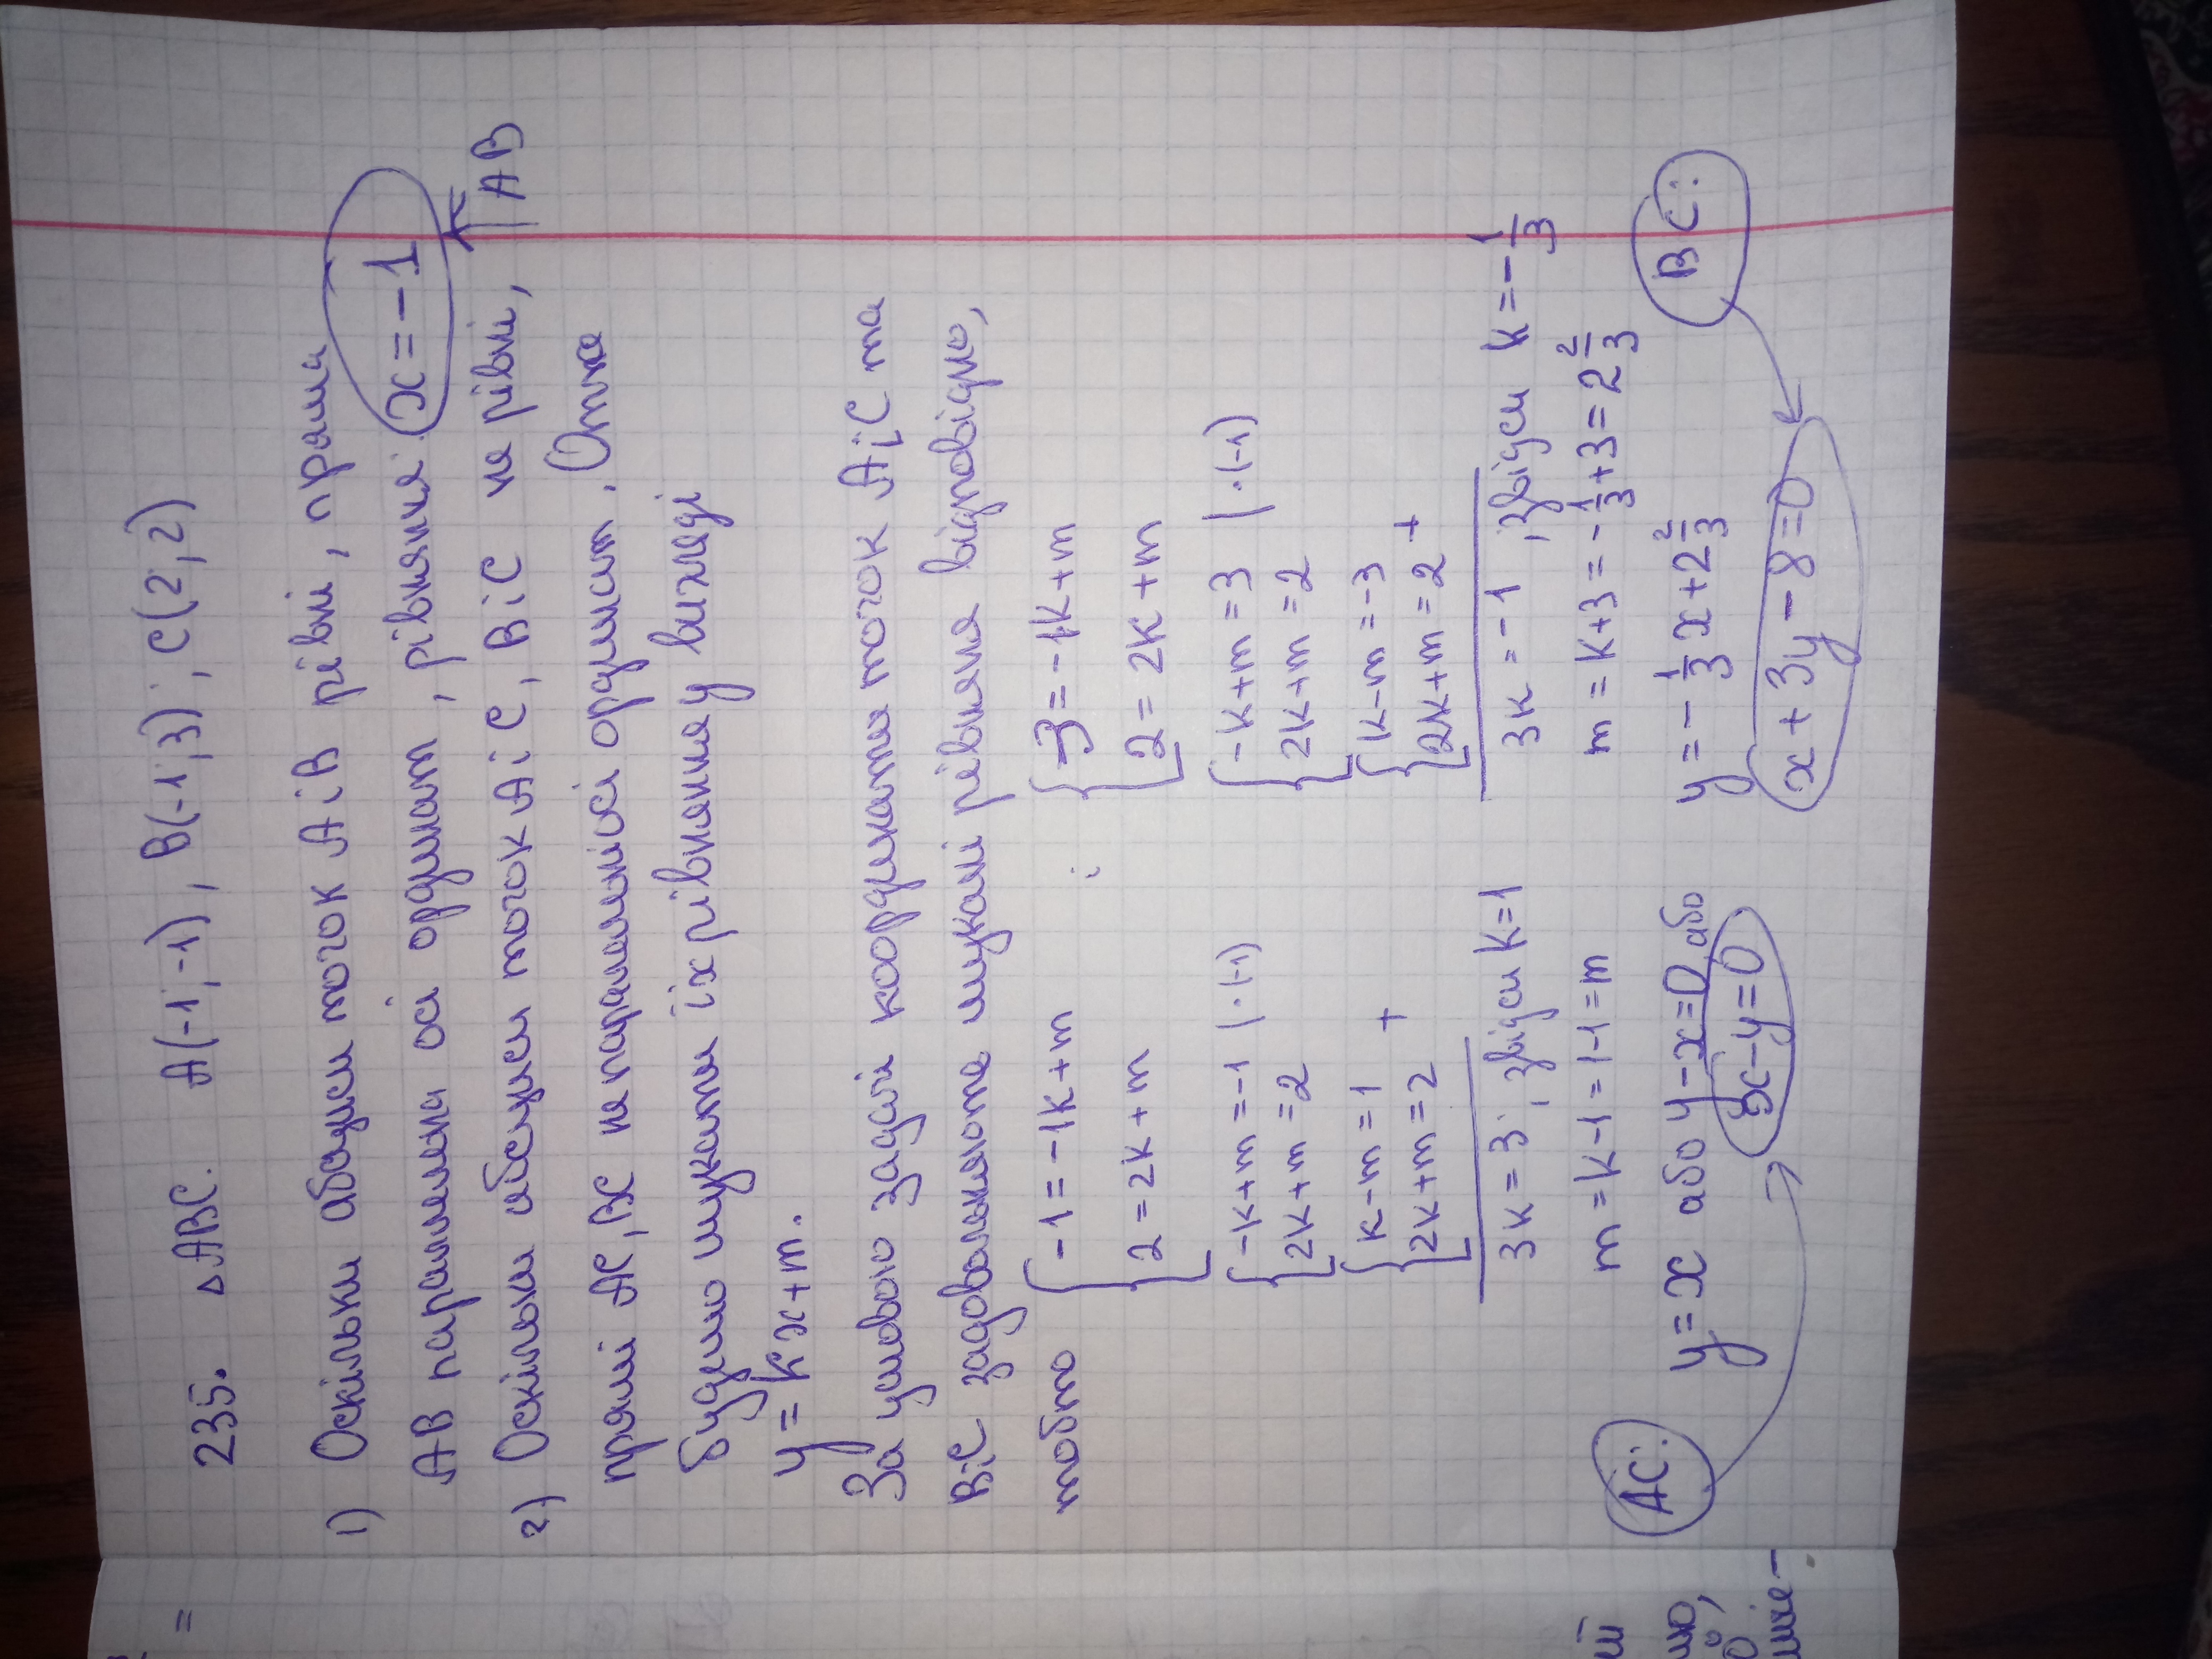 235. △ABC. A(-1;-1), B(-1;3), C(2;2)
1) Оскільки абсциси точок A і B рівні, пряма
AB паралельна осі ординат, рівняння x=-1
AB
2) Оскільки абсциси точок A і C, B і C не рівні,
прямі AC, BC не паралельні осі ординат. Отже
будемо шукати їх рівняння у вигляді
y = kx+m.
За умовою задачі координати точок A і C та
B і C задовольняють шукані рівняння відповідно,
тобто
{ -1 = -1k+m
2 = 2k+m
{ -k+m=-1 | ·(-1)
2k+m=2
{ k-m=1
2k+m=2 +
3k=3, звідси k=1
m=k-1=1-1=m
AC: y=x або y-x=0 або
x-y=0
{ 3=-1k+m
2=2k+m
{ -k+m=3 | ·(-1)
2k+m=2
{ k-m=-3
2k+m=2 +
3k=-1, звідси k=-1/3
m=k+3=-1/3+3=2 2/3
y=-1/3 x+2 2/3
BC:
x+3y-8=0
=